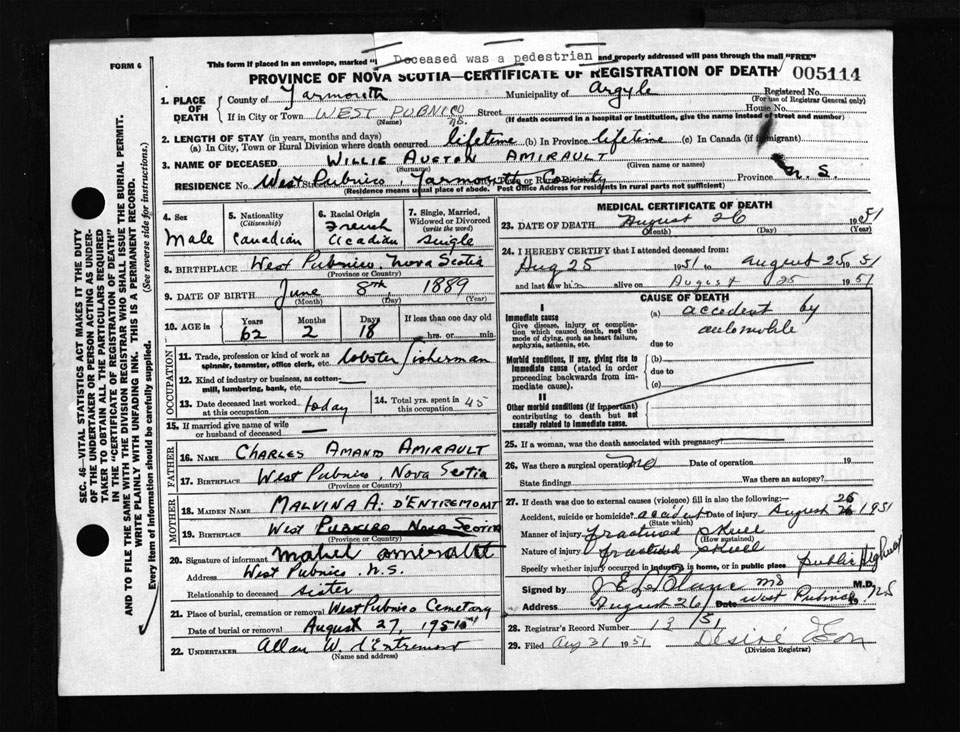 FORM 6
This form if placed in an envelope, marked "I
Deceased was a pedestrian
and properly addressed will pass through the mail "FREE"
PROVINCE OF NOVA SCOTIA—CERTIFICATE OF REGISTRATION OF DEATH 005114
SEC. 46—VITAL STATISTICS ACT MAKES IT THE DUTY
OF THE UNDERTAKER OR PERSON ACTING AS UNDER-
TAKER TO OBTAIN ALL THE PARTICULARS REQUIRED
IN THE "CERTIFICATE OF REGISTRATION OF DEATH"
AND TO FILE THE SAME WITH THE DIVISION REGISTRAR WHO SHALL ISSUE THE BURIAL PERMIT.
WRITE PLAINLY WITH UNFADING INK. THIS IS A PERMANENT RECORD.
Every item of information should be carefully supplied. (See reverse side for instructions.)
1. PLACE OF DEATH
County of Yarmouth Municipality of Argyle Registered No.
(For use of Registrar General only)
If in City or Town WEST PUBNICO NS. Street House No.
(Name) (If death occurred in a hospital or institution, give the name instead of street and number)
2. LENGTH OF STAY (in years, months and days)
(a) In City, Town or Rural Division where death occurred lifetime (b) In Province lifetime (c) In Canada (if immigrant)
3. NAME OF DECEASED WILLIE AUSTON AMIRAULT
(Surname) (Given name or names)
RESIDENCE No. West Pubnico, Yarmouth County Province N. S.
Street City, Town or Rural Division
(Residence means usual place of abode. Post Office Address for residents in rural parts not sufficient)
4. Sex
Male
5. Nationality
(Citizenship)
Canadian
6. Racial Origin
French
Acadian
7. Single, Married,
Widowed or Divorced
(write the word)
Single
8. BIRTHPLACE West Pubnico, Nova Scotia
(Province or Country)
9. DATE OF BIRTH June 8th 1889
(Month) (Day) (Year)
10. AGE in Years Months Days If less than one day
62 2 18 hrs. or min.
OCCUPATION
11. Trade, profession or kind of work as lobster fisherman
spinner, teamster, office clerk, etc.
12. Kind of industry or business, as cotton-
mill, lumbering, bank, etc.
13. Date deceased last worked
at this occupation today
14. Total yrs. spent in
this occupation 45
15. If married give name of wife
or husband of deceased
FATHER
16. Name CHARLES AMAND AMIRAULT
17. BIRTHPLACE West Pubnico, Nova Scotia
(Province or Country)
MOTHER
18. MAIDEN NAME MALVINA A. D'ENTREMONT
19. BIRTHPLACE West PUBNICO NOVA SCOTIA
(Province or Country)
20. Signature of informant Mabel Amirault
Address West Pubnico, N.S.
Relationship to deceased sister
21. Place of burial, cremation or removal West Pubnico Cemetary
Date of burial or removal August 27, 1951
22. UNDERTAKER Allan W. d'Entremont
(Name and address)
MEDICAL CERTIFICATE OF DEATH
23. DATE OF DEATH August 26 1951
(Month) (Day) (Year)
24. I HEREBY CERTIFY that I attended deceased from:
Aug 25 1951 to August 25 1951
and last saw him alive on August 25 1951
CAUSE OF DEATH
I
Immediate cause
Give disease, injury or complica-
tion which caused death, not the
mode of dying, such as heart failure,
asphyxia, asthenia, etc.
(a) accident by
automobile
due to
Morbid conditions, if any, giving rise to
immediate cause (stated in order
proceeding backwards from im-
mediate cause).
(b)
due to
(c)
II
Other morbid conditions (if important)
contributing to death but not
causally related to immediate cause.
25. If a woman, was the death associated with pregnancy?
26. Was there a surgical operation? no Date of operation 19
State findings Was there an autopsy?
27. If death was due to external causes (violence) fill in also the following:
Accident, suicide or homicide? accident Date of injury August 25 1951
(State which)
Manner of injury fractured skull
(How sustained)
Nature of injury fractured skull
Specify whether injury occurred in industry, in home, or in public place public highway
Signed by J E LeBlanc MD M.D.
Address August 26/ Date West Pubnico. NS
28. Registrar's Record Number 13/51
29. Filed Aug 31 1951 Desiré Eon
(Division Registrar)